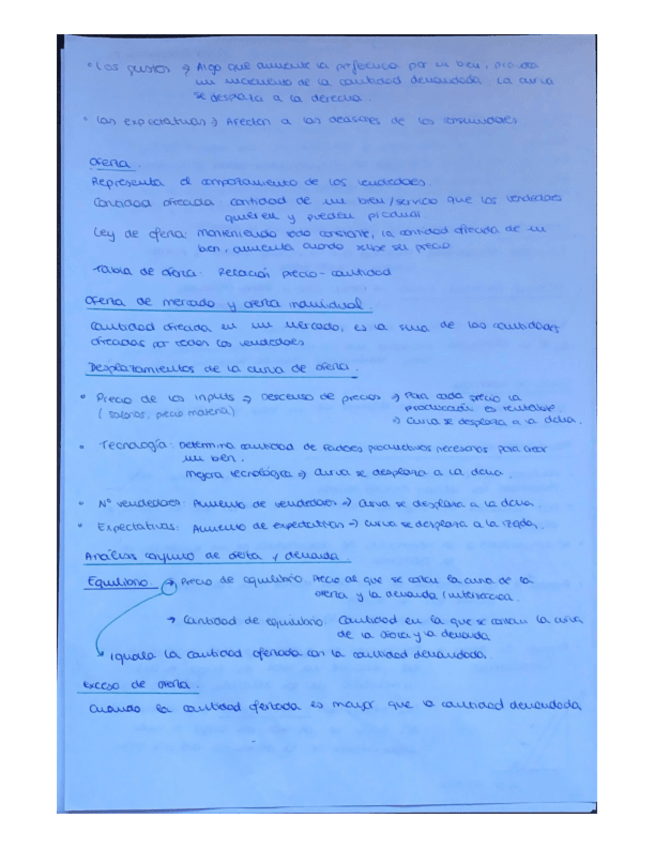 • Los gustos → Algo que aumente la preferencia por un bien, provoca
un incremento de la cantidad demandada. La curva
se desplaza a la derecha.
• Las expectativas → Afectan a las decisiones de los consumidores
Oferta.
Representa el comportamiento de los vendedores.
Cantidad ofrecida: cantidad de un bien/servicio que los vendedores
quieren y pueden producir
Ley de oferta: manteniendo todo constante, la cantidad ofrecida de un
bien, aumenta cuando sube su precio
Tabla de oferta: Relación precio - cantidad
Oferta de mercado y oferta individual.
Cantidad ofrecida en un mercado, es la suma de las cantidades
ofrecidas por todos los vendedores
Desplazamientos de la curva de oferta.
• Precio de los inputs → Descenso de precios → Para cada precio la
(salarios, precio materia) producción es rentable.
→ Curva se desplaza a la dcha.
• Tecnología: Determina cantidad de factores productivos necesarios para crear
un bien.
Mejora tecnológica → Curva se desplaza a la dcha.
• Nº vendedores: Aumento de vendedores → Curva se desplaza a la dcha.
• Expectativas: Aumento de expectativas → Curva se desplaza a la izqda.
Análisis conjunto de oferta y demanda.
Equilibrio. → Precio de equilibrio: Precio al que se cortan la curva de la
oferta y la demanda / intersección.
→ Cantidad de equilibrio: Cantidad en la que se cortan la curva
de la oferta y la demanda
Iguala la cantidad ofertada con la cantidad demandada.
Exceso de oferta.
Cuando la cantidad ofertada es mayor que la cantidad demandada